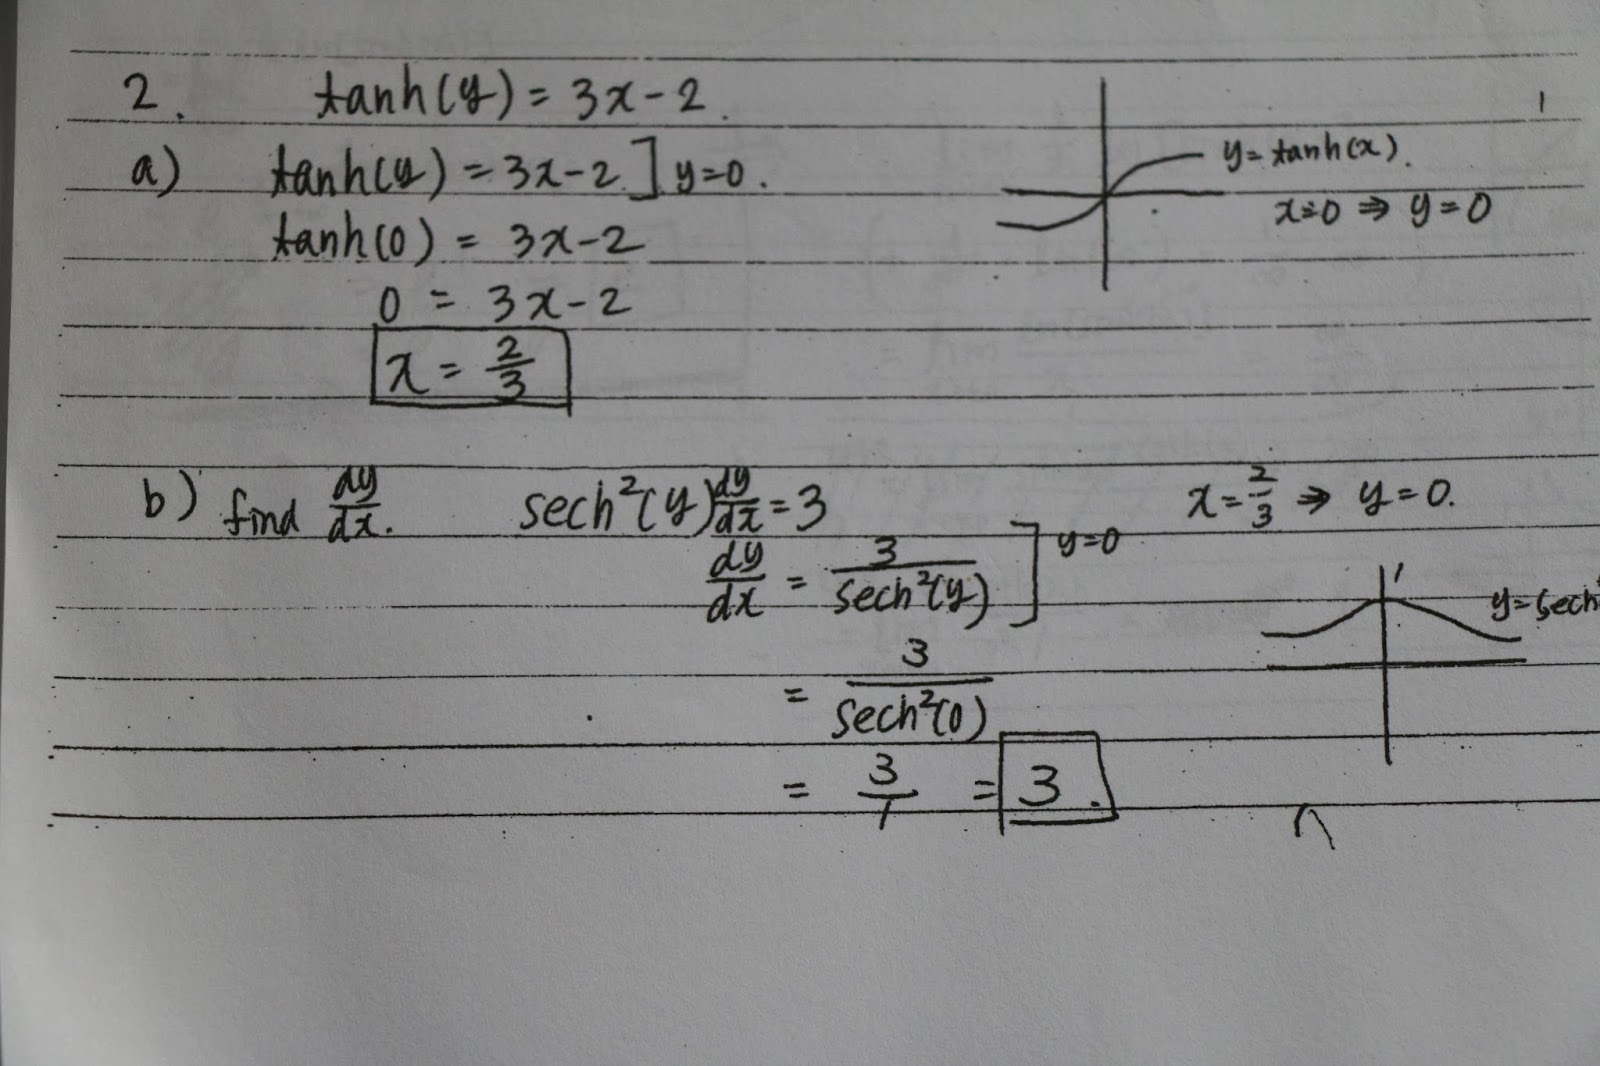 2. tanh(y) = 3x-2.
a) tanh(y) = 3x-2 ] y=0.
tanh(0) = 3x-2
0 = 3x-2
x = 2/3
y=tanh(x).
x=0 ⇒ y=0
b) find dy/dx. sech²(y) dy/dx = 3
x = 2/3 ⇒ y=0.
dy/dx = 3/sech²(y) ] y=0
= 3/sech²(0)
= 3/1 = 3.
1
y=sech